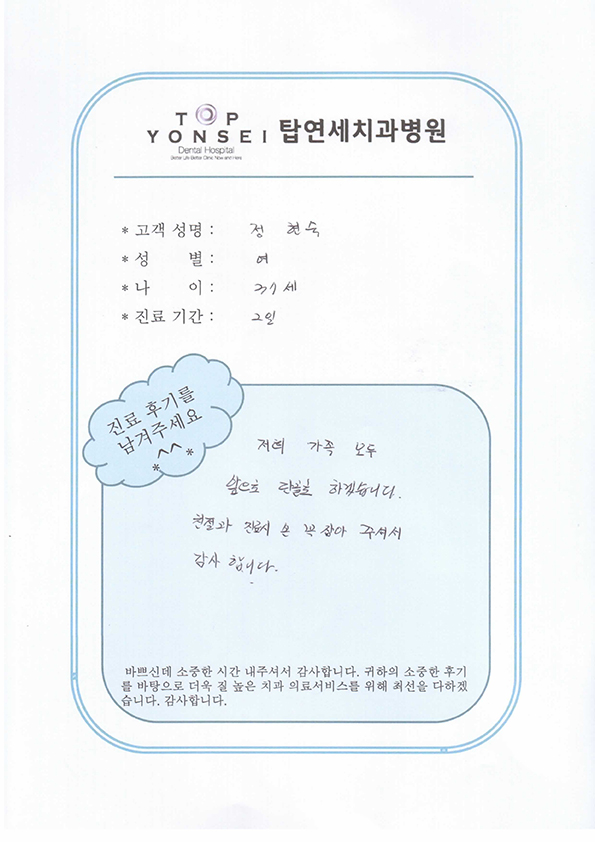 TOP
YONSEI 탑연세치과병원
Dental Hospital
Better Life Better Clinic Now and Here
* 고객 성명 : 정 현숙
* 성 별 : 여
* 나 이 : 37세
* 진료 기간 : 2일
진료 후기를
남겨주세요
*^^*
저희 가족 모두
앞으로 단골로 하겠습니다.
친절과 진료시 손 꼭 잡아 주셔서
감사 합니다.
바쁘신데 소중한 시간 내주셔서 감사합니다. 귀하의 소중한 후기
를 바탕으로 더욱 질 높은 치과 의료서비스를 위해 최선을 다하겠
습니다. 감사합니다.